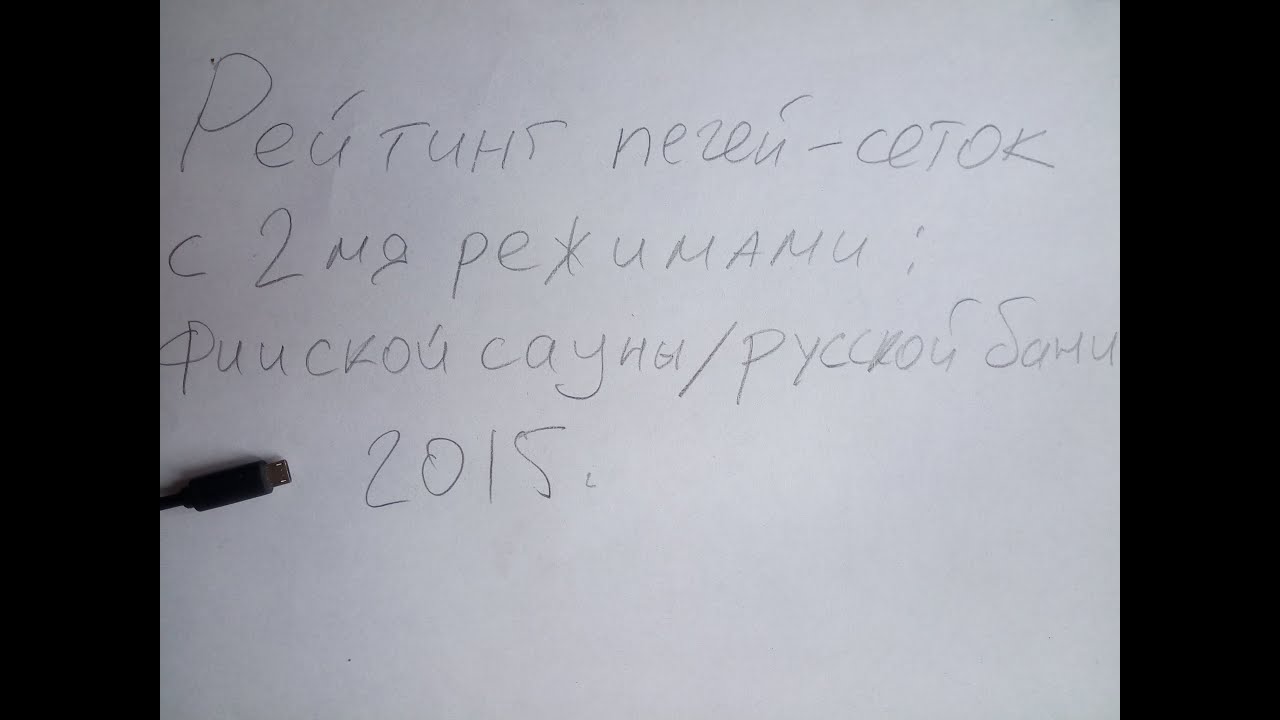 Рейтинг печей-сеток
с 2мя режимами:
фииской сауны/русской бани
2015.